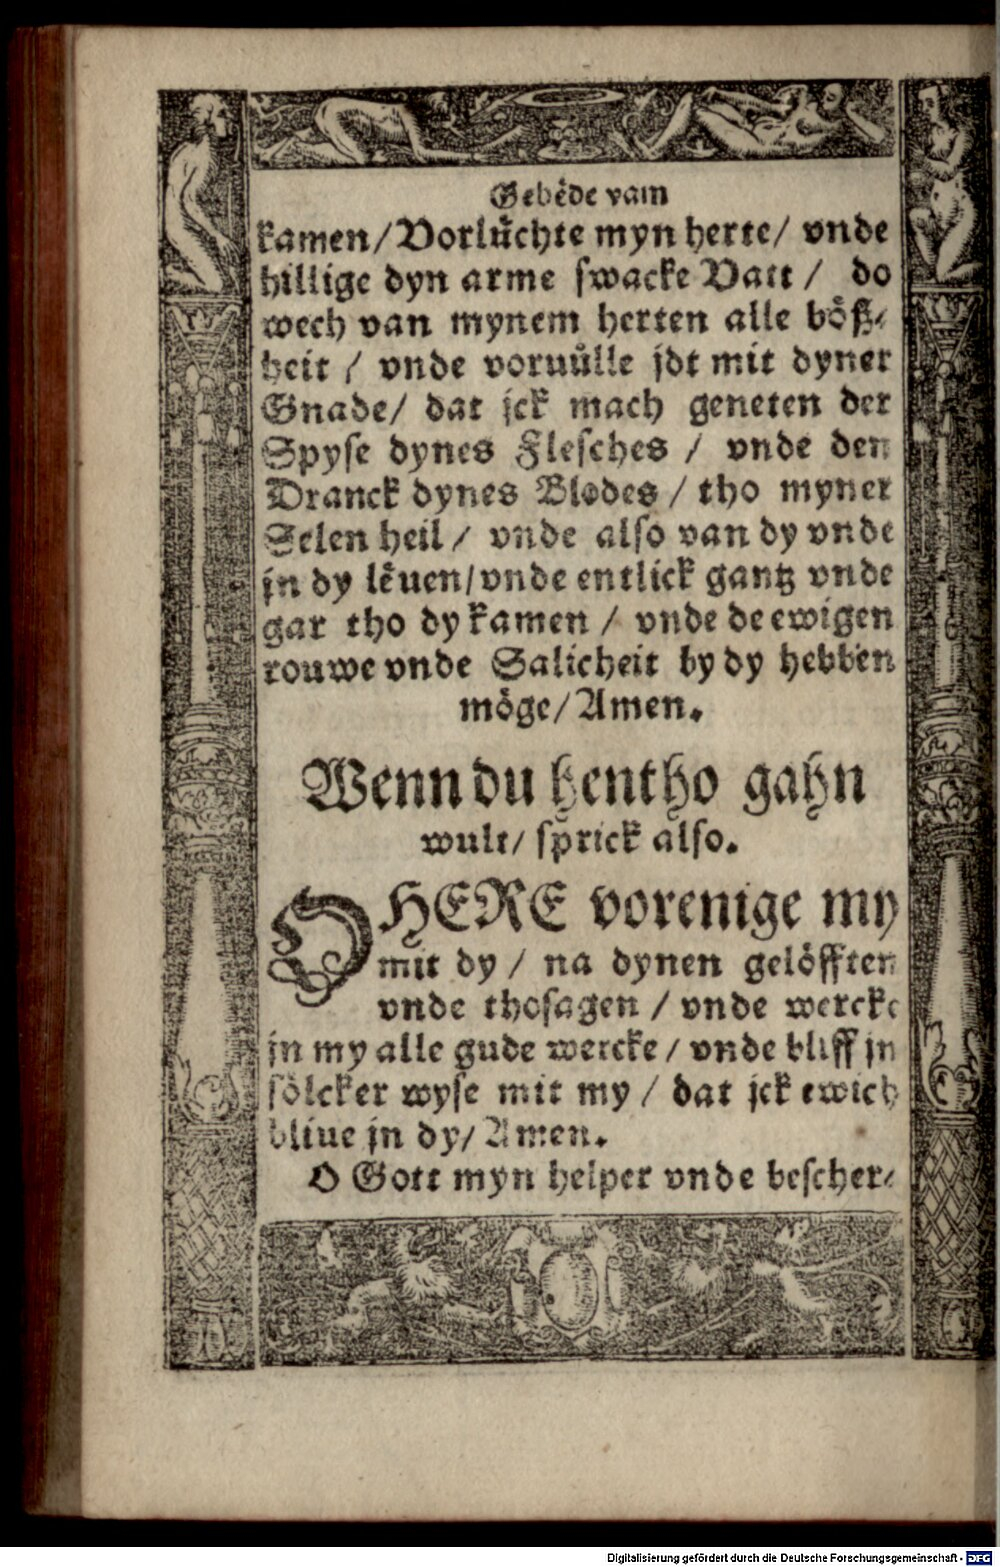 Gebêde vam
kamen/ Vorlüchte myn herte/ vnde
hillige dyn arme swacke Vatt / do
wech van mynem herten alle böß⸗
heit / vnde voruülle jdt mit dyner
Gnade/ dat jck mach geneten der
Spyse dynes Flesches / vnde den
Dranck dynes Blodes / tho myner
Selen heil / vnde also van dy vnde
jn dy lêuen/ vnde entlick gantz vnde
gar tho dy kamen / vnde de ewigen
rouwe vnde Salicheit by dy hebben
möge/ Amen.
Wenn du hentho gahn
wult/ sprick also.
O HERE vorenige my
mit dy / na dynen gelöfften
vnde thosagen / vnde wercke
jn my alle gude wercke / vnde bliff jn
sölcker wyse mit my / dat jck ewich
bliue jn dy/ Amen.
O Gott myn helper vnde bescher⸗
Digitalisierung gefördert durch die Deutsche Forschungsgemeinschaft - DFG